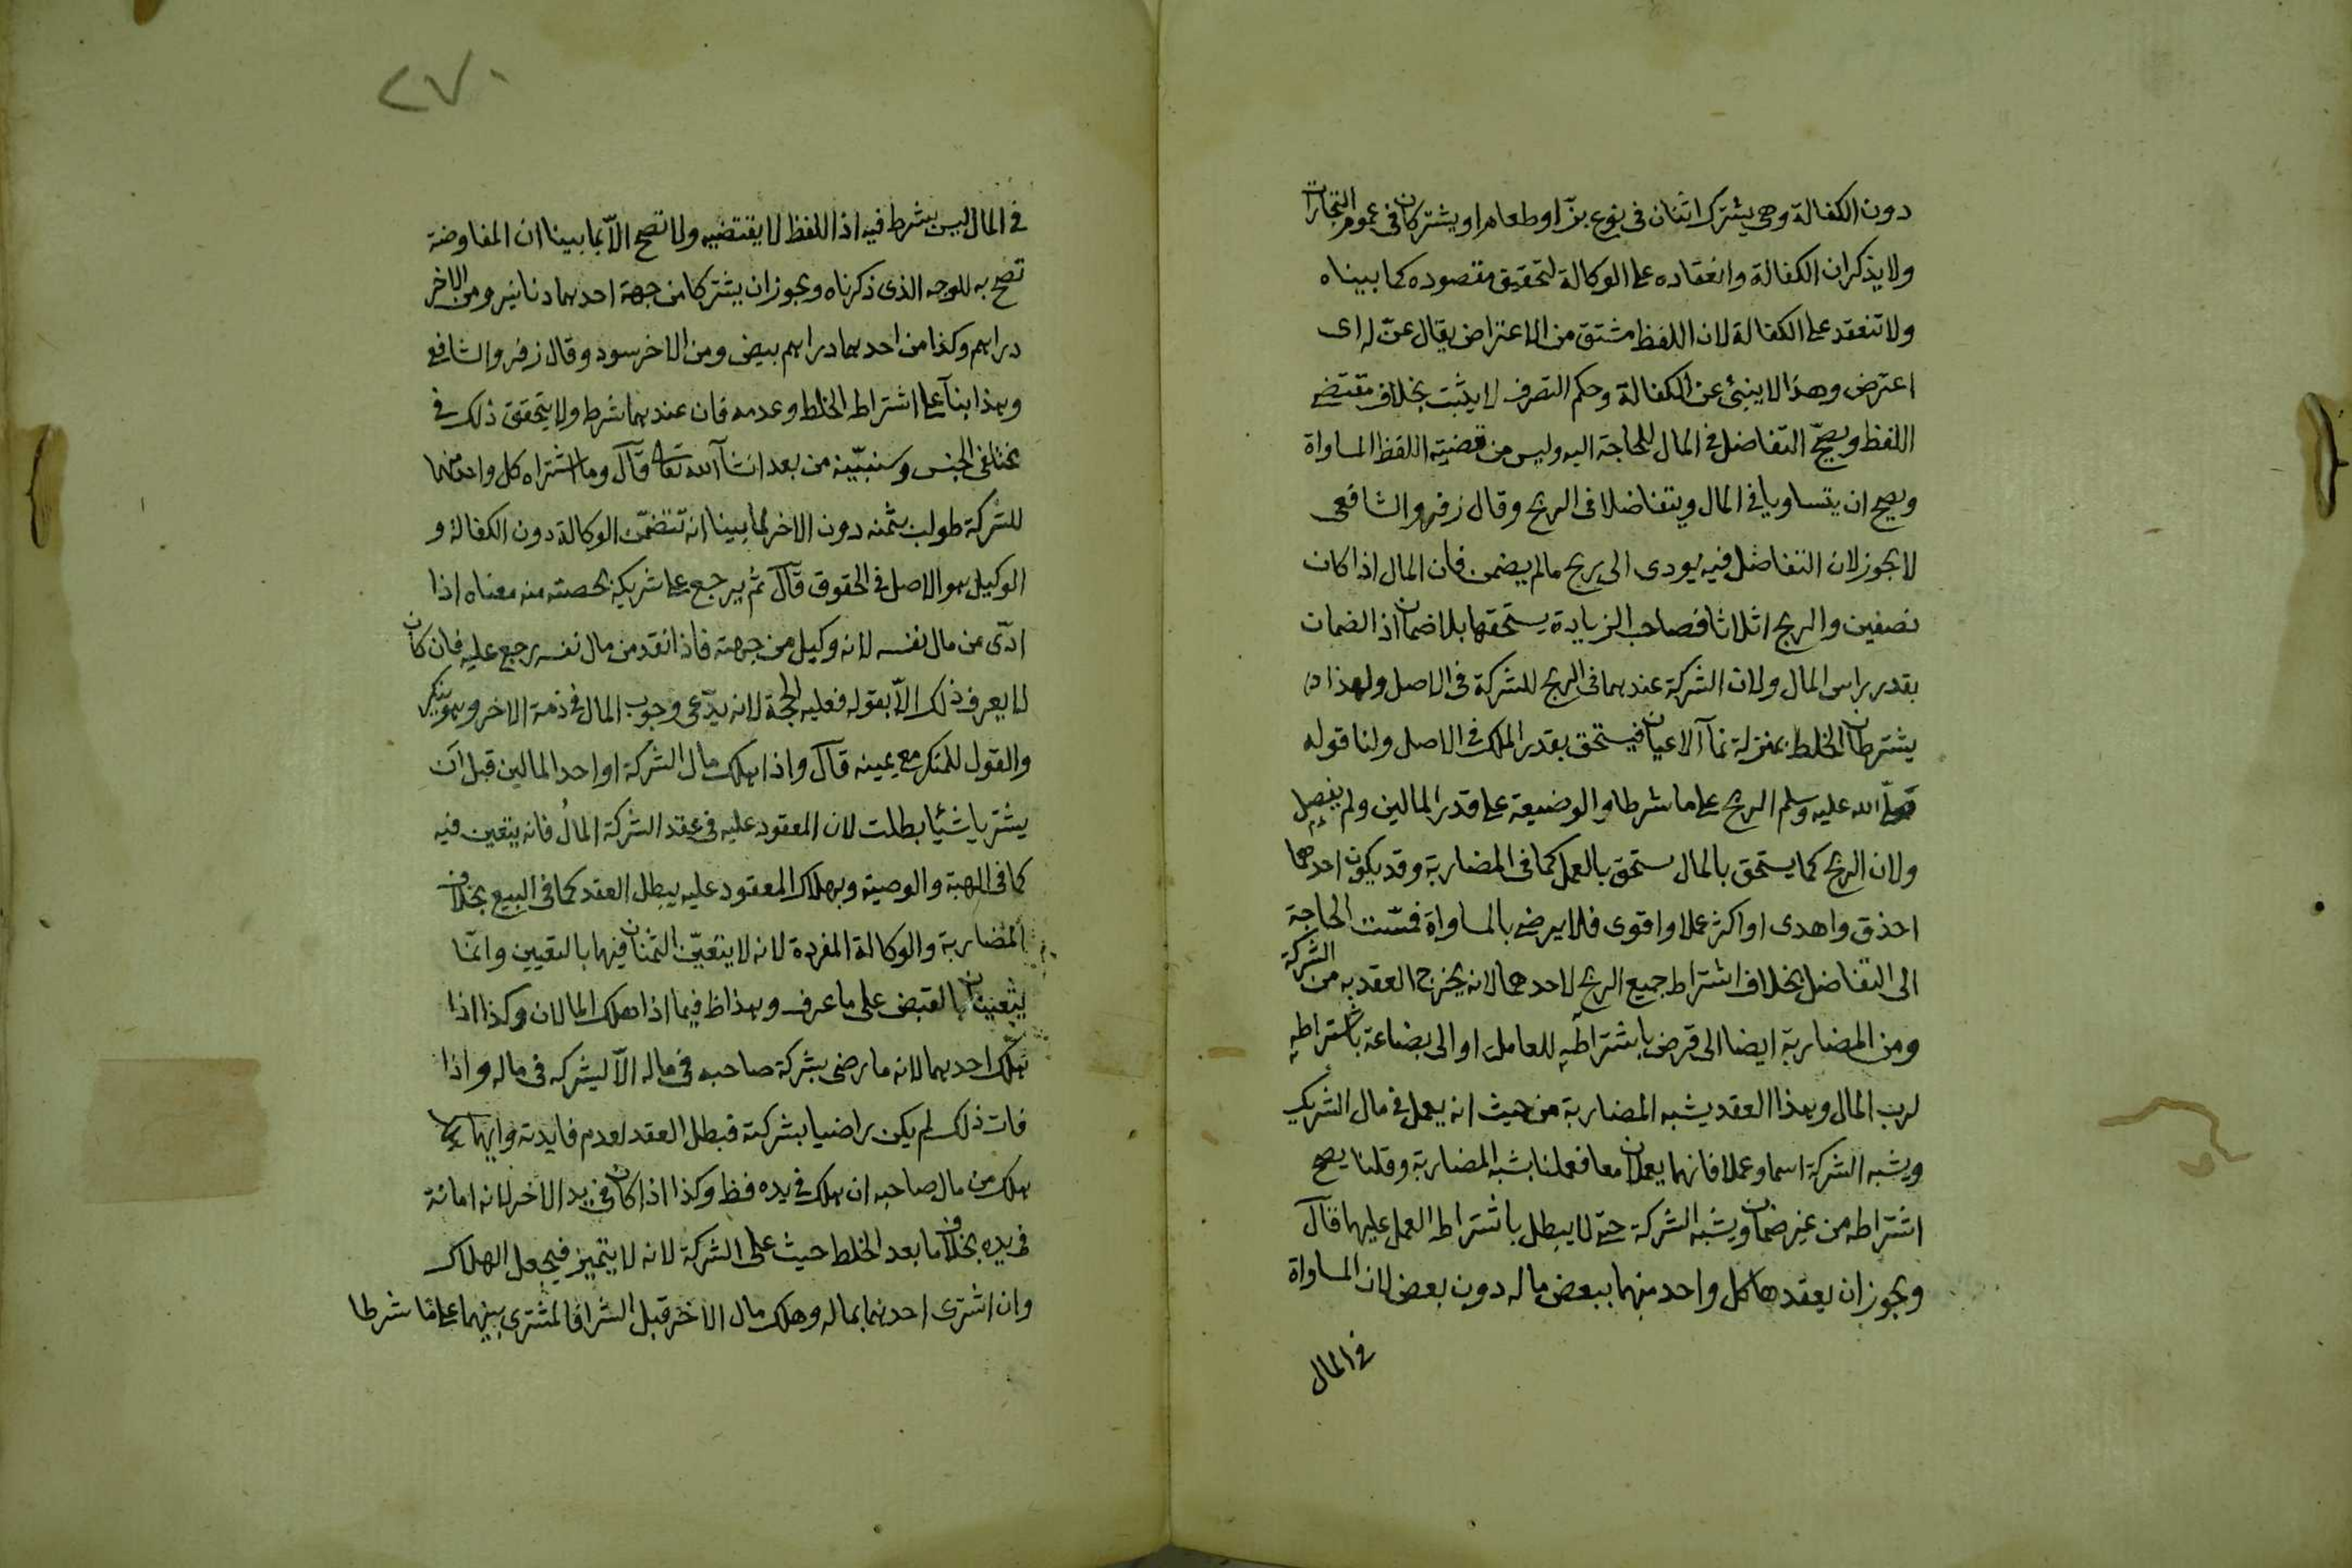 دون الكفالة وهى يشترك اثنان فى نوع بزّ او طعام او يشتركان فى عموم التجارات
ولا يذكران الكفالة وانعقاده على الوكالة لتحقيق مقصوده كما بيناه
ولا تنعقد على الكفالة لان اللفظ مشتق من الاعتراض يقال عنّ له اى
اعترض وهذا لا ينبئ عن الكفالة وحكم التصرف لا يثبت بخلاف مقتضى
اللفظ ويصحّ التفاضل فى المال للحاجة اليه وليس من قضيته اللفظ المساواة
ويصح ان يتساويا فى المال ويتفاضلا فى الربح وقال زفر والشافعى
لا يجوز لان التفاضل فيه يودى الى ربح مالم يضمن فان المال اذا كان
نصفين والربح اثلاثا فصاحب الزيادة يستحقها بلا ضمان اذ الضمان
بقدر راس المال ولان الشركة عندهما فى الربح للشركة فى الاصل ولهذا
يشترطان الخلط بمنزلة نمآ الاعيان فيستحق بقدر الملك فى الاصل ولنا قوله
صلّى الله عليه وسلم الربح على ما شرطا والوضيعة على قدر المالين ولم يفصل
ولان الربح كما يستحق بالمال ستحق بالعمل كما فى المضاربة وقد يكون احدهما
احذق واهدى او اكثر عملا واقوى فلا يرضى بالمساواة فمسّت الحاجة
الى التفاضل بخلاف اشتراط جميع الربح لاحدهما لانه يخرج العقد به من الشركة
ومن المضاربة ايضا الى قرض باشتراطه للعامل او الى بضاعة باشتراطه
لرب المال وهذا العقد يشبه المضاربة من حيث انه يعمل فى مال الشريك
ويشبه الشركة اسما وعملا فانهما يعملان معا فعملنا بشبه المضاربة وقلنا يصح
اشتراطه من غير ضمان ويشبه الشركة حتى لا يبطل باشتراط العمل عليهما قال
ويجوز ان يعقدها كل واحد منهما ببعض ماله دون بعض لان المساواة
فى المال
٢٧٠
فى المال ليس بشرط فيه اذ اللفظ لا يقتضيه ولا تصح الاّ بما بينا ان المفاوضة
تصح به للوجه الذى ذكرناه ويجوز ان يشتركا من جهة احدهما دنانير ومن الاخر
دراهم وكذا من احدهما دراهم بيض ومن الاخر سود وقال زفر والشافعى
وهذا بنآ على اشتراط الخلط وعدمه فان عندهما شرط ولا يتحقق ذلك فى
مختلفى الجنس وسنبيّنه من بعد انشآ الله تعالى قال وما اشتراه كل واحد منهما
للشركة طولب بثمنه دون الاخر لما بينا انه تتضمّن الوكالة دون الكفالة و
الوكيل هو الاصل فى الحقوق قال ثم يرجع على شريكه بحصته منه معناه اذا
ادّى من مال نفسه لانه وكيل من جهته فاذا نقد من مال نفسه رجع عليه فان كان
لا يعرف ذلك الاّ بقوله فعليه الحجة لانه يدّعى وجوب المال فى ذمة الاخر وهو ينكر
والقول للمنكر مع يمينه قال واذا هلك مال الشركة او احد المالين قبل ان
يشتريا شيئا بطلت لان المعقود عليه فى عقد الشركة المال فانه يتعين فيه
كما فى الهبة والوصية وبهلاك المعقود عليه يبطل العقد كما فى البيع بخلاف
المضاربة والوكالة المفردة لانه لا يتعيّن الثمنان فيهما بالتعيين وانّما
يتعينان بالقبض على ما عرف وهذا ظ فيما اذا هلك المالان وكذا اذا
هلك احدهما لانه ما رضى بشركة صاحبه فى ماله الاّ ليشركه فى ماله واذا
فات ذلك لم يكن راضيا بشركته فبطل العقد لعدم فايدته وايهما
هلك من مال صاحبه ان هلك فى يده فظ وكذا اذا كان فى يد الاخر لانه امانة
فى يده بخلاف ما بعد الخلط حيث على الشركة لانه لا يتميز فيجعل الهلاك
وان اشترى احدهما بماله وهلك مال الاخر قبل الشرا فالمشترى بينهما على ما شرطا